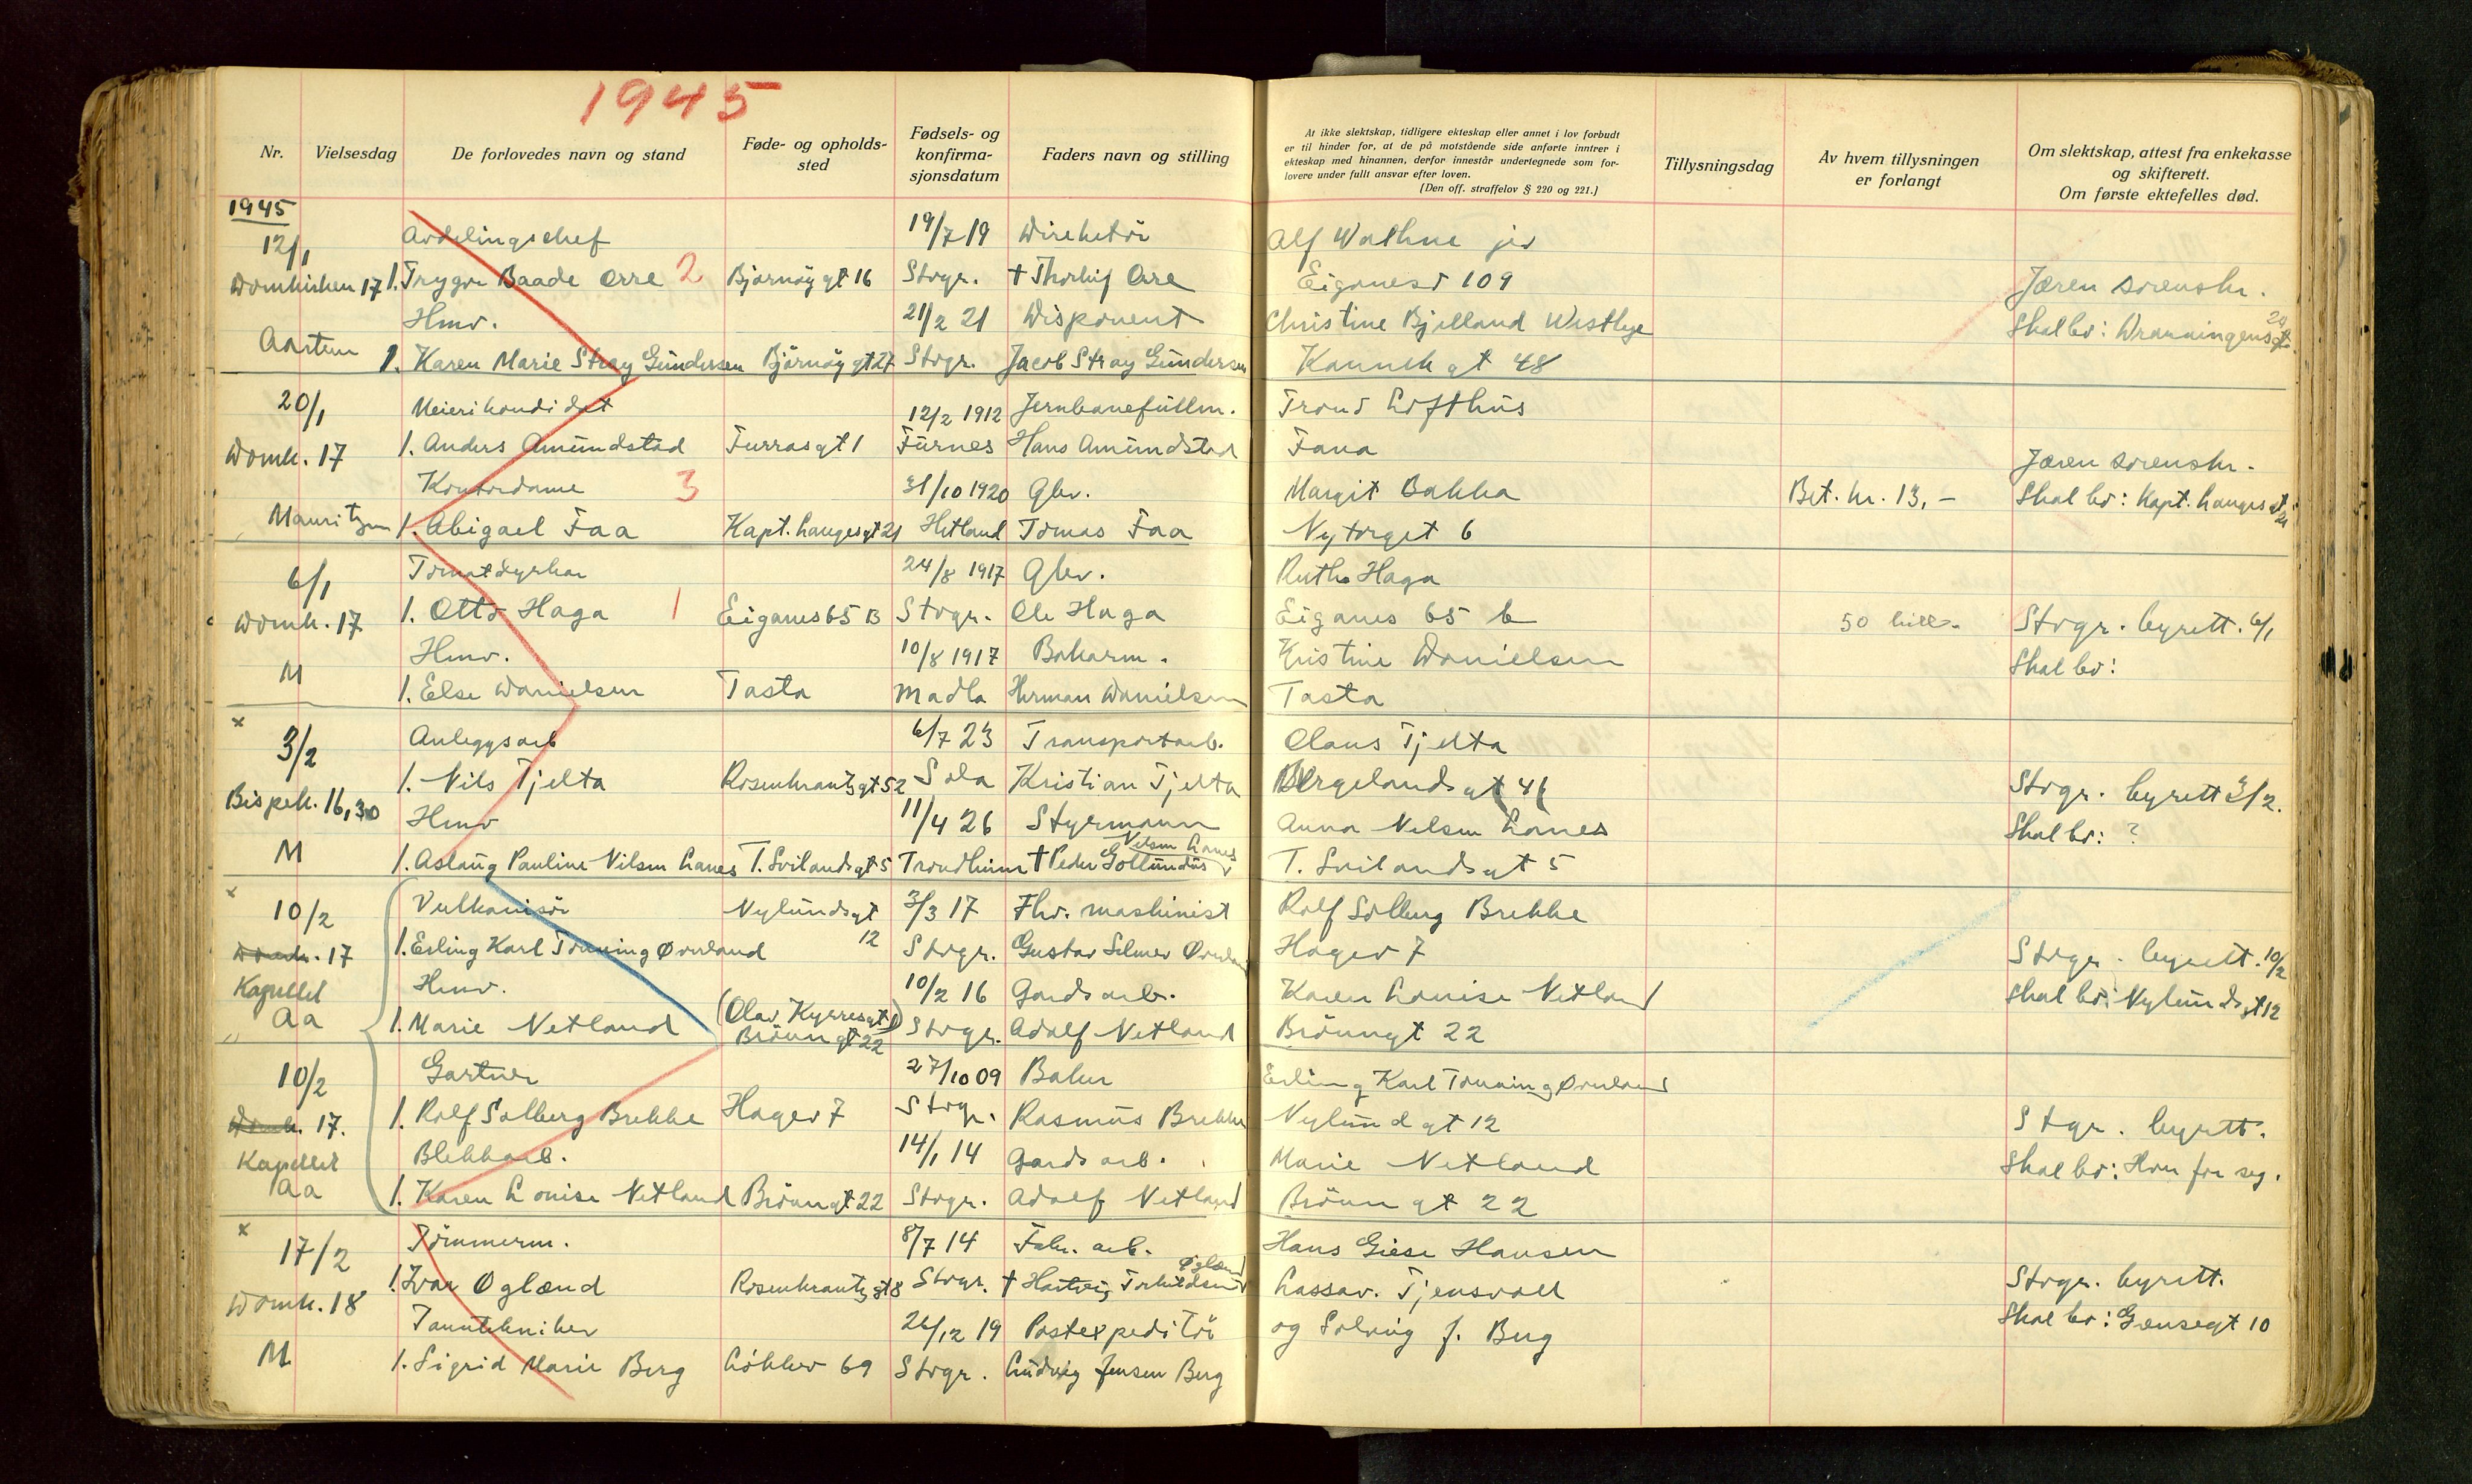 1945
Nr.
Vielsesdag
De forlovedes navn og stand
Føde- og opholds-
sted
Fødsels- og
konfirma-
sjonsdatum
Faders navn og stilling
At ikke slektskap, tidligere ekteskap eller annet i lov forbudt
er til hinder for, at de på motstående side anførte inntrer i
ekteskap med hinannen, derfor innestår undertegnede som for-
lovere under fullt ansvar efter loven.
(Den off. straffelov § 220 og 221.)
Tillysningsdag
Av hvem tillysningen
er forlangt
Om slektskap, attest fra enkekasse
og skifterett.
Om første ektefelles død.
1945
12/1 Avdelingschef 19/7 19 Direktør Alf Wathne jr
Domkirken 17 1. Trygve Baade Orre 2 Bjørnøygt 16 Stvgr. † Thorleif Orre Eiganesv 109 Jæren sorenskr.
Hmv. 21/2 21 Disponent Christine Bjelland Westbye Skal bo: Dronningensgt. 20
Aartun 1. Karen Marie Stray Gundersen Bjørnøygt 27 Stvgr. Jacob Stray Gundersen Kannikgt 48
20/1 Meierikandidat 12/2 1912 Jernbanefullm. Trond Lofthus
Domk. 17 1. Anders Amundstad Furrasgt 1 Furnes Hans Amundstad Fana Jæren sorenskr.
Kontordame 3 31/10 1920 Gbr. Margit Bakka Bet. kr. 13,- Skal bo: Kapt. Langesgt 21
Mauritzen 1. Abigael Faa Kapt. Langesgt 21 Hetland Tomas Faa Nytorget 6
6/1 Tomatdyrker 24/8 1917 Gbr. Ruth Haga
Domk. 17 1. Otto Haga 1 Eiganes 65 B Stvgr. Ole Haga Eiganes 65 b 50 Stvgr. byrett. 6/1
Hmv. 10/8 1917 Bakerm. Kristine Danielsen Skal bo:
M 1. Else Danielsen Tasta Madla Herman Danielsen Tasta
x
3/2 Anleggsarb 6/7 23 Transportarb. Olaus Tjelta
Bispek. 16,30 1. Nils Tjelta Rosenkrantzgt 52 Sola Kristian Tjelta Bergelandsgt 41 Stvgr. byrett 3/2.
Hmv 11/4 26 Styrmann Anna Nilsen Lanes Skal bo: ?
M 1. Aslaug Pauline Nilsen Lanes T. Svilandsgt 5 Trondheim † Peder Gollundus Nilsen Lanes T. Svilandsgt 5
x
10/2 Vulkanisør Nylundsgt 12 3/3 17 Fhv. maskinist Rolf Solberg Brekke
Domk. 17 1. Erling Karl Tonning Øvreland Stvgr. Gustav Selmer Øvreland Hagev 7 Stvgr. byrett. 10/2
Kapellet Hmv. 10/2 16 Gardsarb. Karen Louise Netland Skal bo: Nylundsgt 12
Aa 1. Marie Netland (Olav Kyrresgt) Brønngt 22 Stvgr. Adolf Netland Brønngt 22
10/2 Gartner 27/10 09 Baker Erling Karl Tonning Øvreland
Domk. 17. 1. Rolf Solberg Brekke Hagev 7 Stvgr. Rasmus Brekke Nylundgt 12 Stvgr. byrett.
Kapellet Blekkarb. 14/1 14 Gardsarb. Marie Netland Skal bo: Hver for seg.
Aa 1. Karen Louise Netland Brønngt 22 Stvgr. Adolf Netland Brønngt 22
x
17/2 Tømmerm. 8/7 14 Fabr. arb. Hans Giese Hansen
Domk. 18 1. Ivar Oglænd Rosenkrantzgt 8 Stvgr. † Hartvig Torkildsen Oglænd Lassav. Tjensvoll Stvgr. byrett.
Tanntekniker 26/12 19 Postexpeditør og Solveig f. Berg Skal bo: Gausegt 10
M 1. Sigrid Marie Berg Løkkev 69 Stvgr. Ludvig Jensen Berg